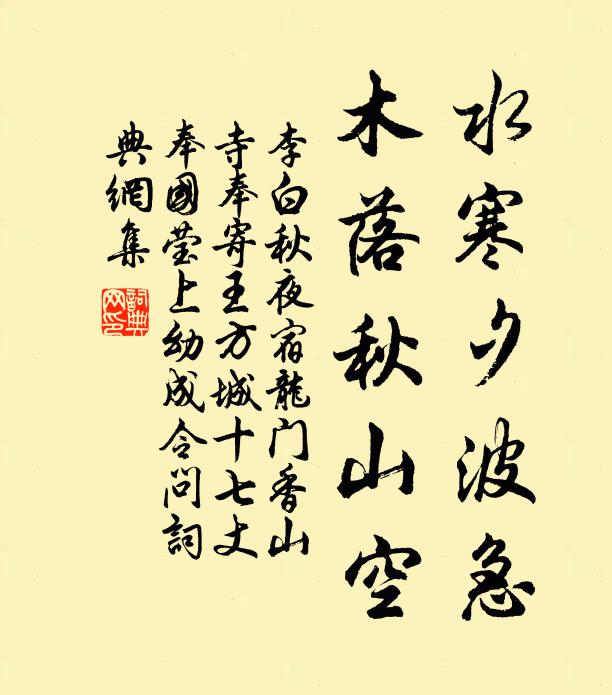 水寒夕波急
木落秋山空
李白秋夜宿龍门香山
寺奉寄王方城十七丈
奉國莹上幼成令问詞
典網集
詞典
网印